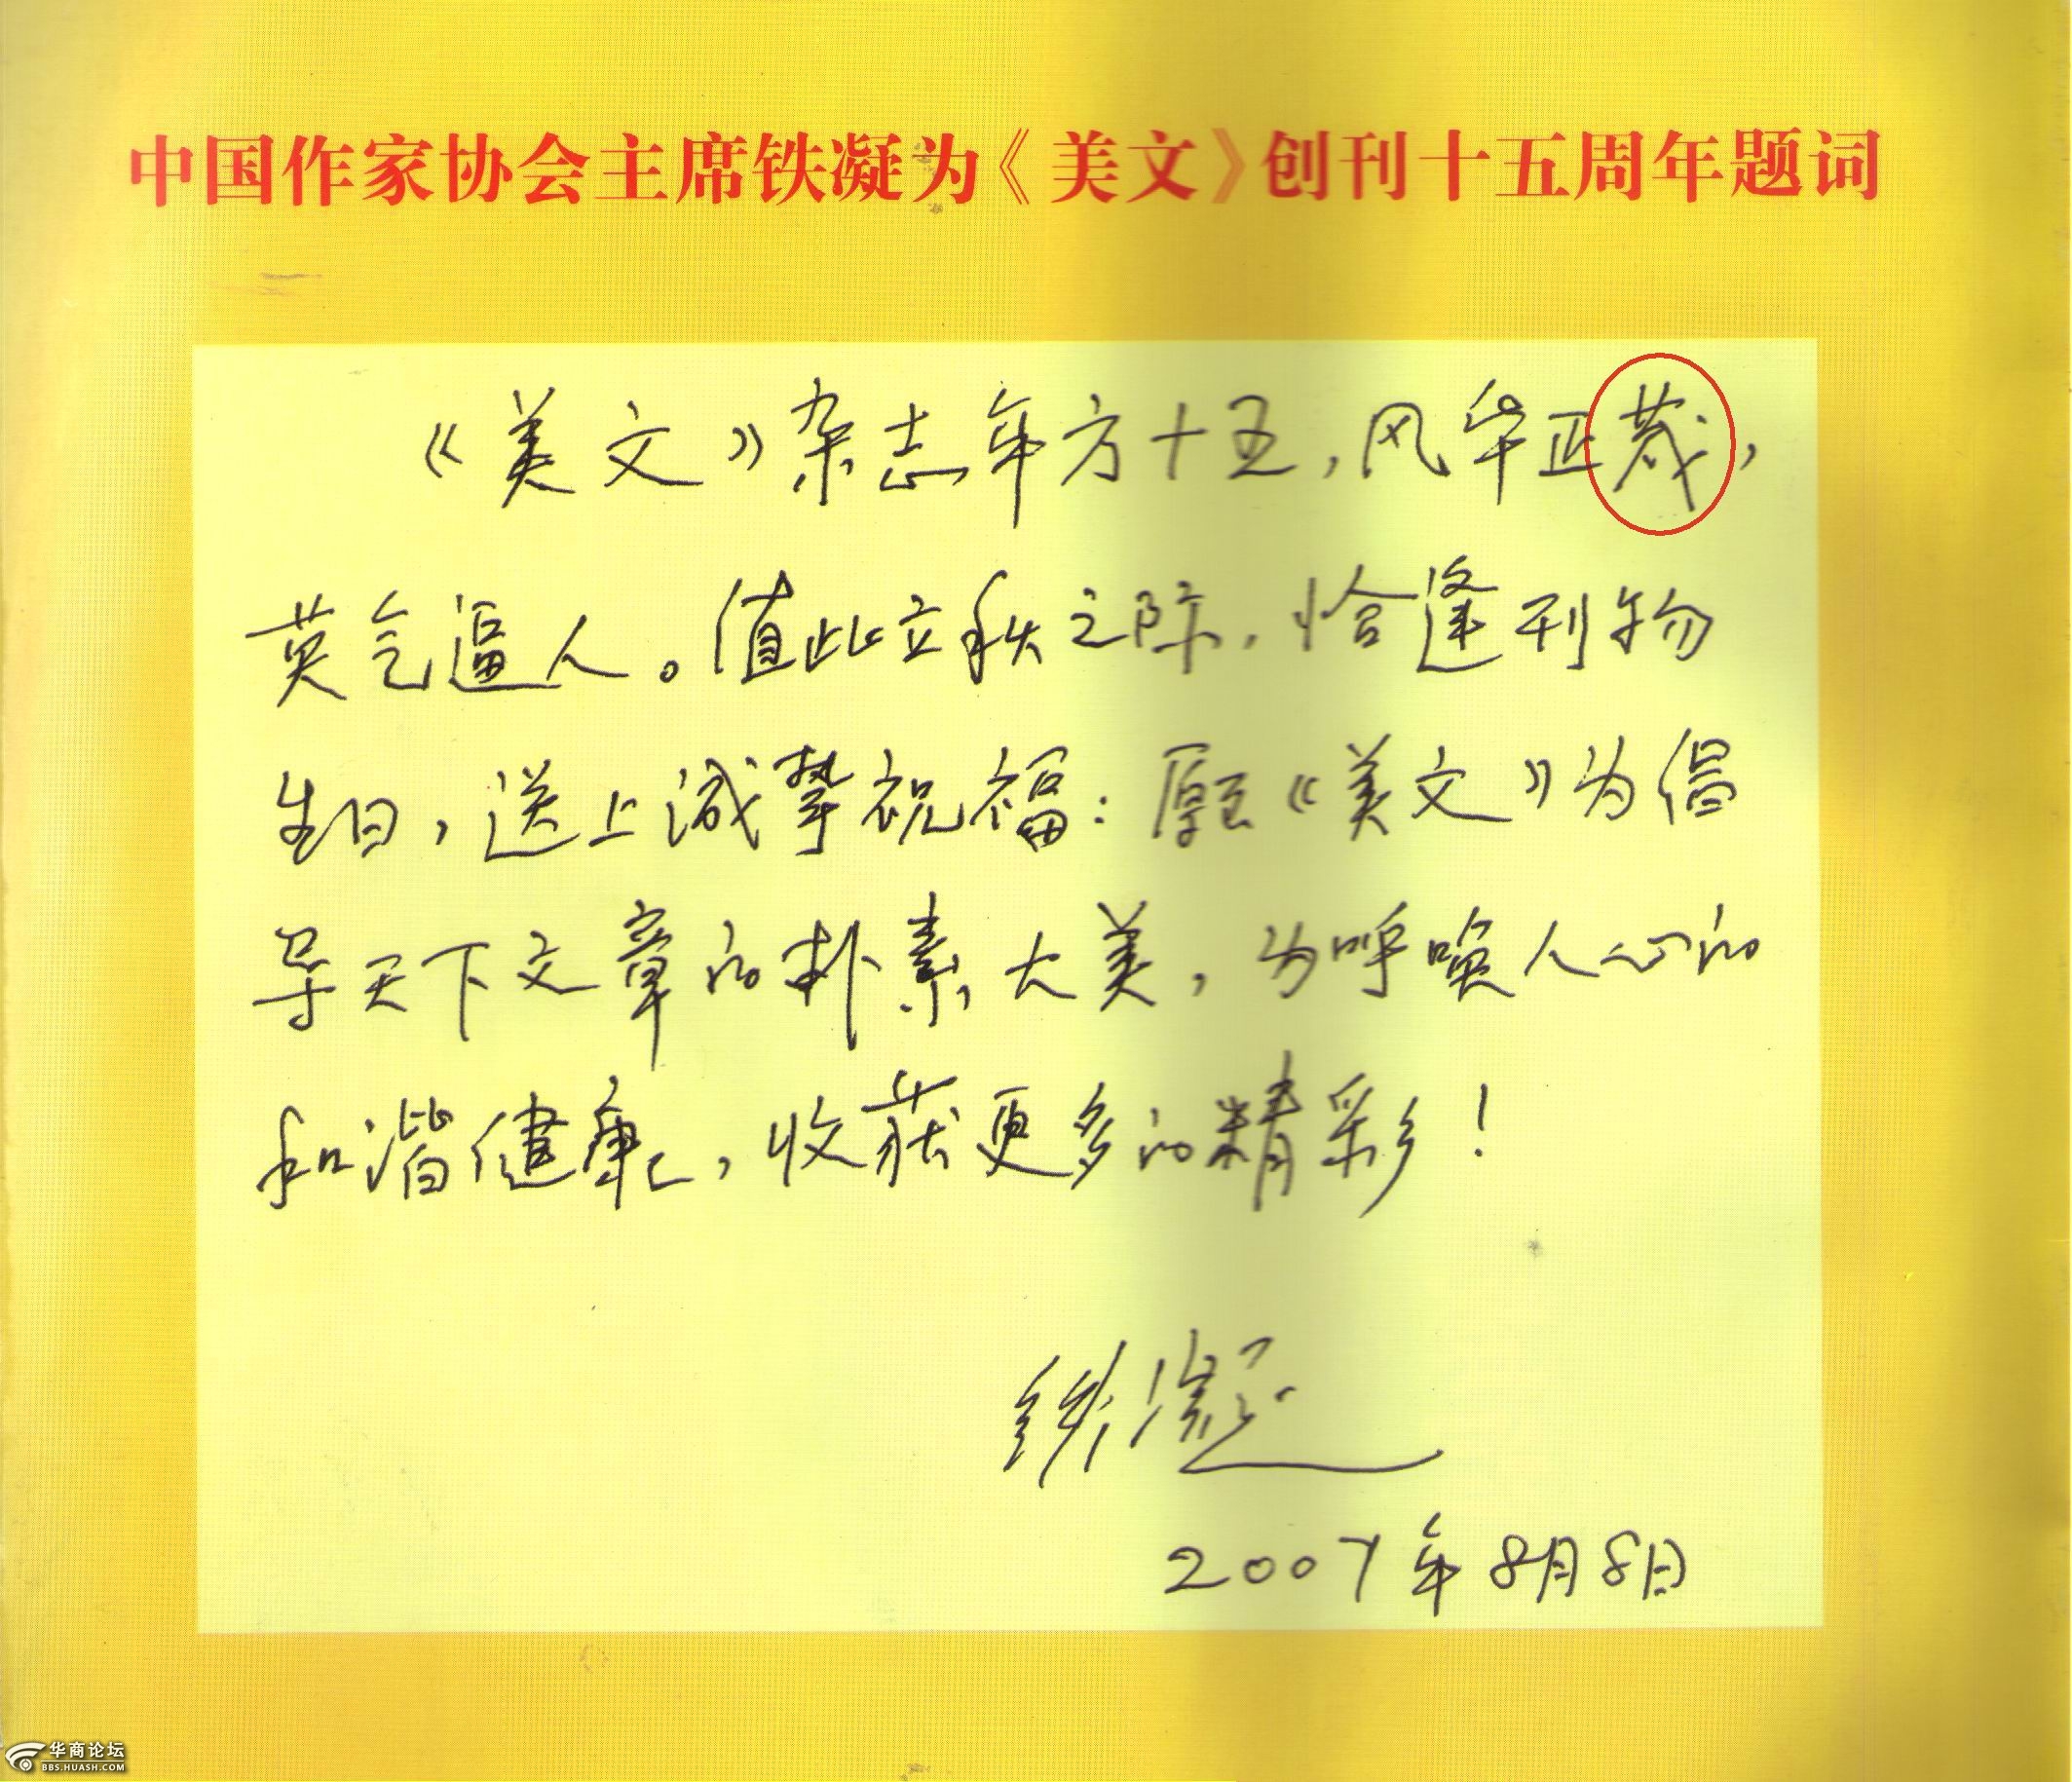 中国作家协会主席铁凝为《美文》创刊十五周年题词
《美文》杂志年方十五，风华正茂，
英气逼人。值此立秋之际，恰逢刊物
生日，送上诚挚祝福：愿《美文》为倡
导天下文章的朴素大美，为呼唤人心的
和谐健康，收获更多的精彩！
铁凝
2007年8月8日
华商论坛
BBS.HUASH.COM